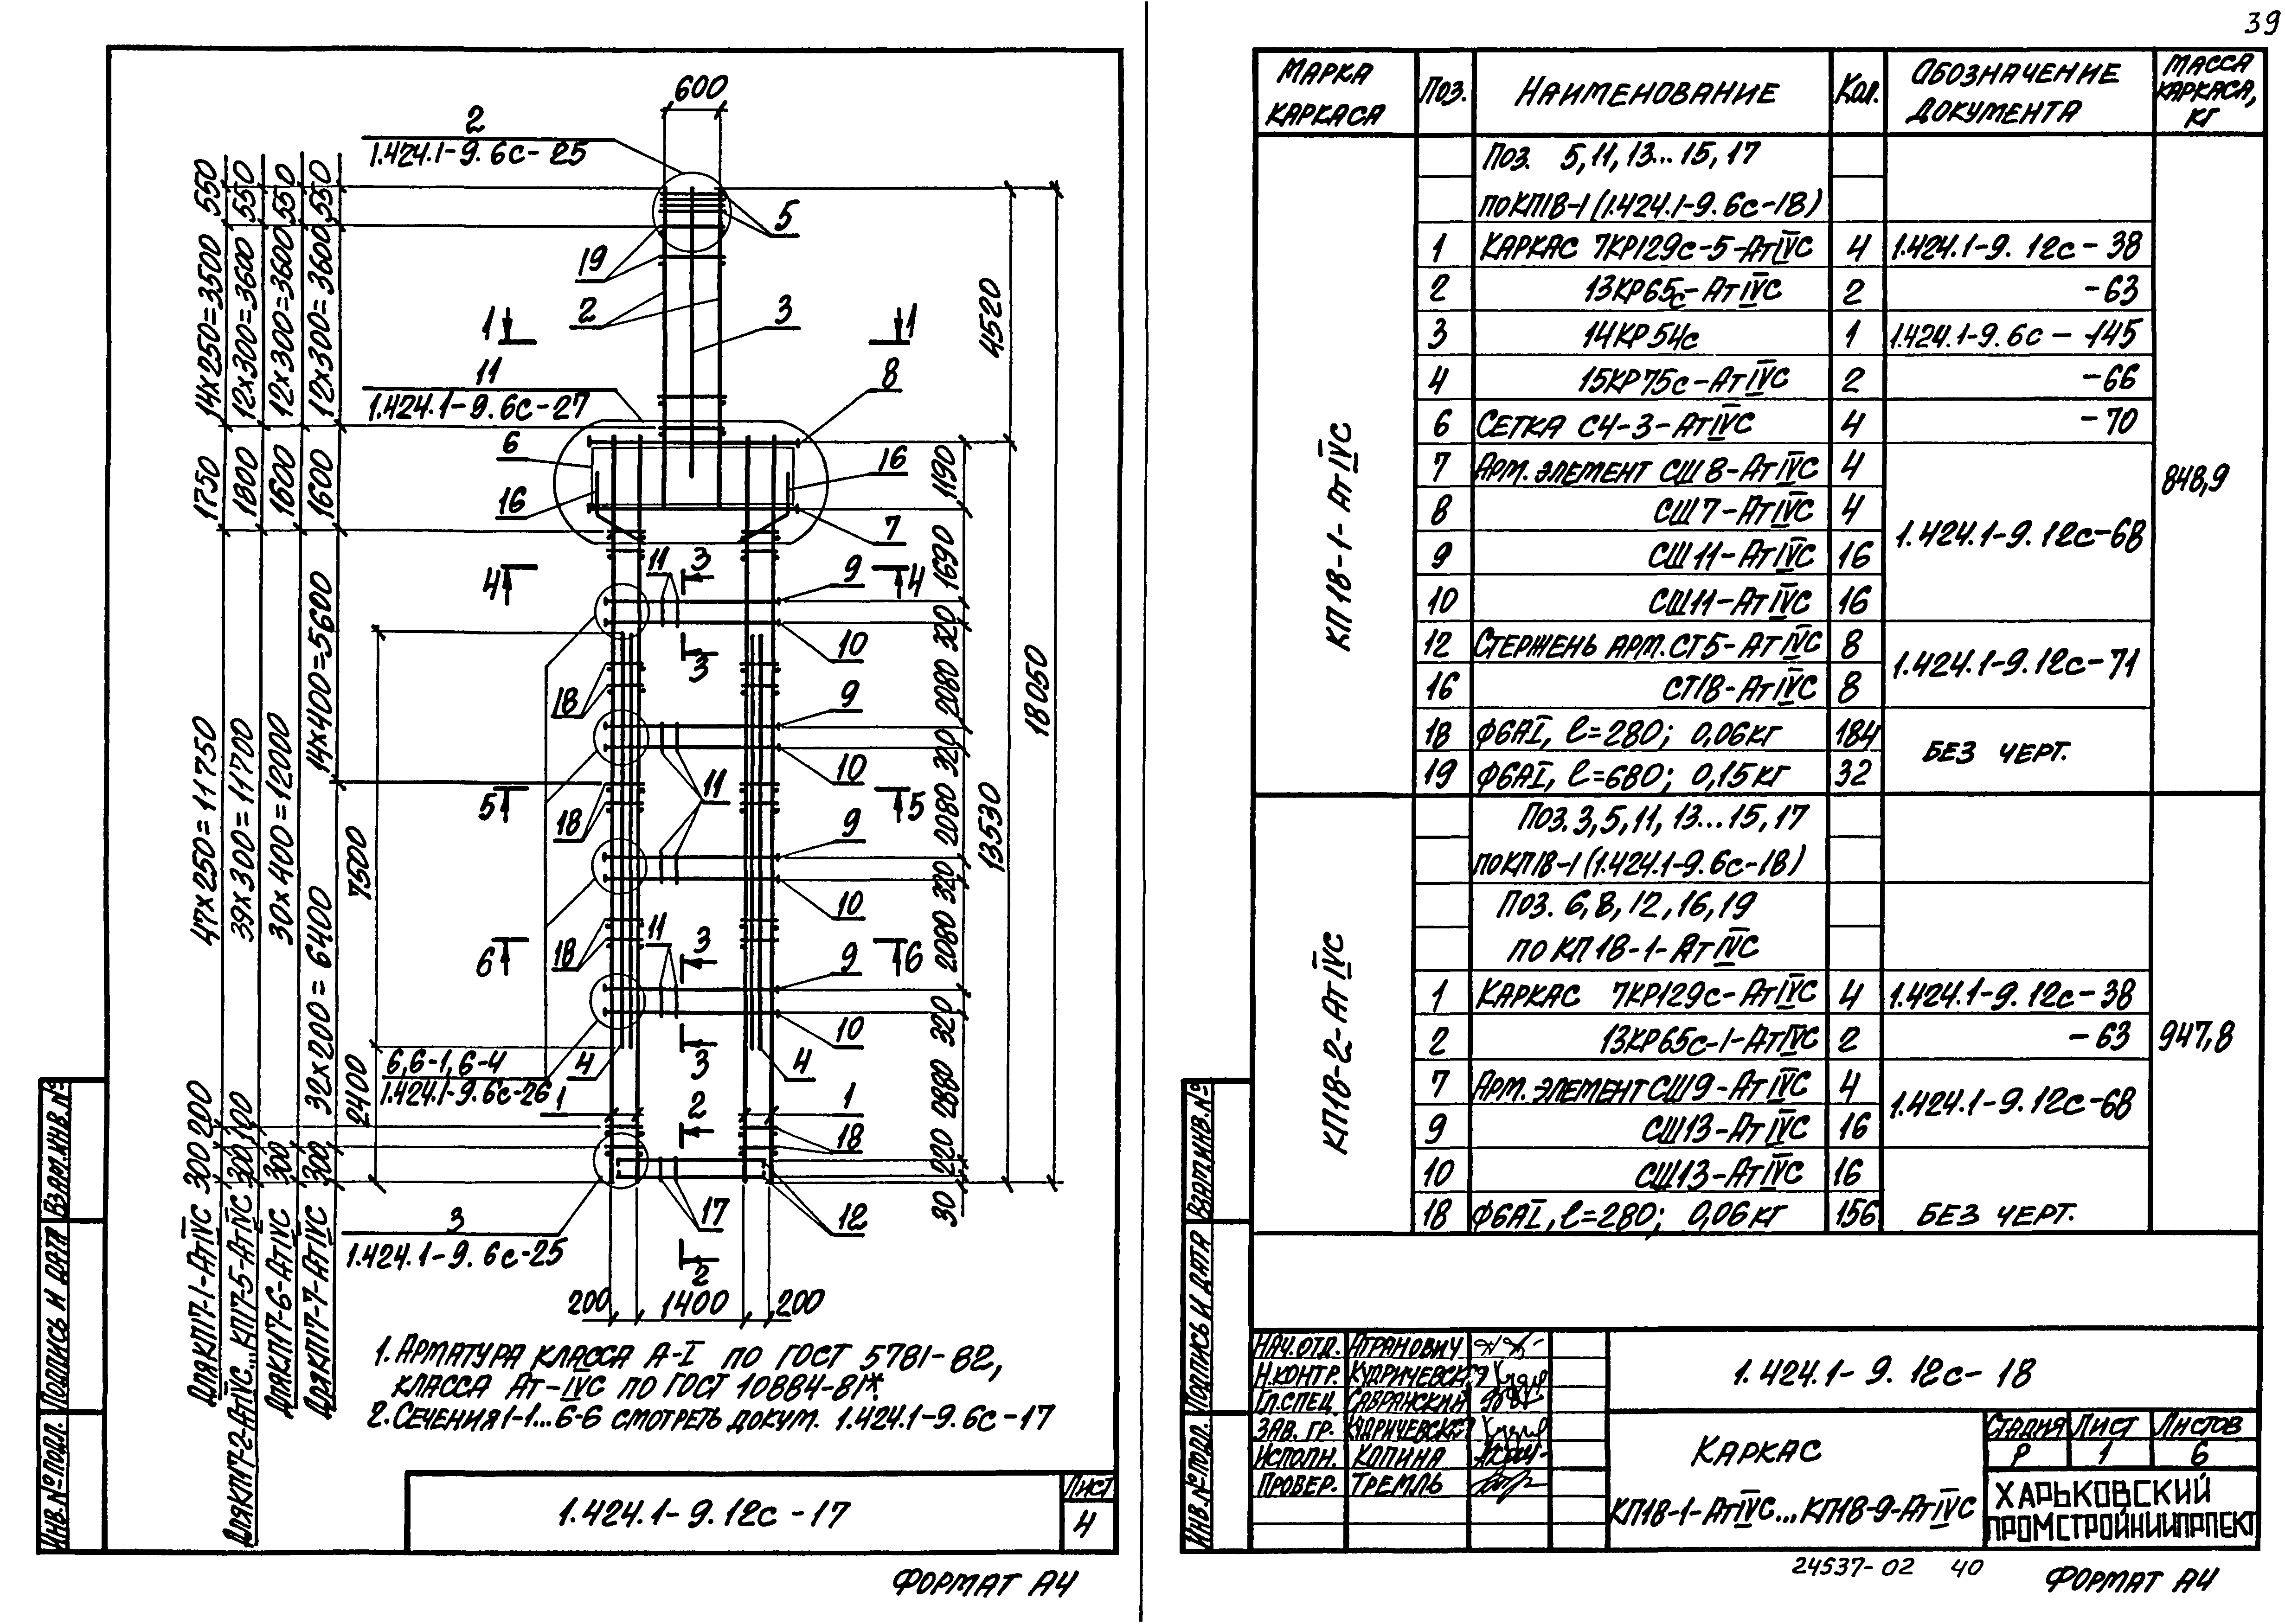 39
600
2
1.424.1-9.6с-25
5
19
2
3
1
1
11
1.424.1-9.6с-27
8
6
16
16
7
3
11
9
4
4
10
3
18
9
10
5
11
5
18
9
10
11
3
18
9
6
6
10
3
6,6-1,6-4
1.424.1-9.6с-26
4
4
1
2
1
18
3
1.424.1-9.6с-25
17
12
2
200
1400
200
550
550
550
550
14х250=3500
12х300=3600
12х300=3600
12х300=3600
1750
1800
1600
1600
47х250=11750
39х300=11700
30х400=12000
14х400=5600
32х200=6400
200
100
300
300
300
300
7500
2400
4520
18050
13530
1190
1690
320
2080
320
2080
320
2080
320
2880
220
30
Для КП17-1-АтIVС
Для КП17-2-АтIVС...КП17-5-АтIVС
Для КП17-6-АтIVС
Для КП17-7-АтIVС
1. Арматура класса А-I по ГОСТ 5781-82,
класса Ат-IVС по ГОСТ 10884-81*.
2. Сечения 1-1...6-6 смотреть докум. 1.424.1-9.6с-17
1.424.1-9.12с-17
Лист
4
Формат А4
Взам.инв.№
Подпись и дата
Инв.№ подл.
Марка каркаса
Поз.
Наименование
Кол.
Обозначение документа
Масса каркаса, кг
КП18-1-АтIVС
Поз. 5,11,13...15,17
по КП18-1 (1.424.1-9.6с-18)
1 Каркас 7КР129с-5-АтIVС 4 1.424.1-9.12с-38
2 13КР65с-АтIVС 2 -63
3 14КР54с 1 1.424.1-9.6с-145
4 15КР75с-АтIVС 2 -66
6 Сетка С4-3-АтIVС 4 -70
7 Арм. элемент СШ8-АтIVС 4
848,9
8 СШ7-АтIVС 4
1.424.1-9.12с-68
9 СШ11-АтIVС 16
10 СШ11-АтIVС 16
12 Стержень арм. СТ5-АтIVС 8
1.424.1-9.12с-71
16 СТ18-АтIVС 8
18 ф6АI, ℓ=280; 0,06кг 184
без черт.
19 ф6АI, ℓ=680; 0,15кг 32
КП18-2-АтIVС
Поз.3,5,11,13...15,17
по КП18-1 (1.424.1-9.6с-18)
Поз. 6,8,12,16,19
по КП18-1-АтIVС
1 Каркас 7КР129с-АтIVС 4 1.424.1-9.12с-38
2 13КР65с-1-АтIVС 2 -63
947,8
7 Арм. элемент СШ9-АтIVС 4
1.424.1-9.12с-68
9 СШ13-АтIVС 16
10 СШ13-АтIVС 16
18 ф6АI, ℓ=280; 0,06кг 156 без черт.
Взам.инв.№
Подпись и дата
Инв.№ подл.
Нач.отд. Атранович
Н.контр. Кудричевск
Гл.спец Савранский
Зав. гр. Кудричевск
Исполн. Копина
Провер. Тремль
1.424.1-9.12с-18
Каркас
КП18-1-АтIVС...КП18-9-АтIVС
Стадия Лист Листов
Р 1 6
ХАРЬКОВСКИЙ
ПРОМСТРОЙНИИПРОЕКТ
24537-02 40
Формат А4